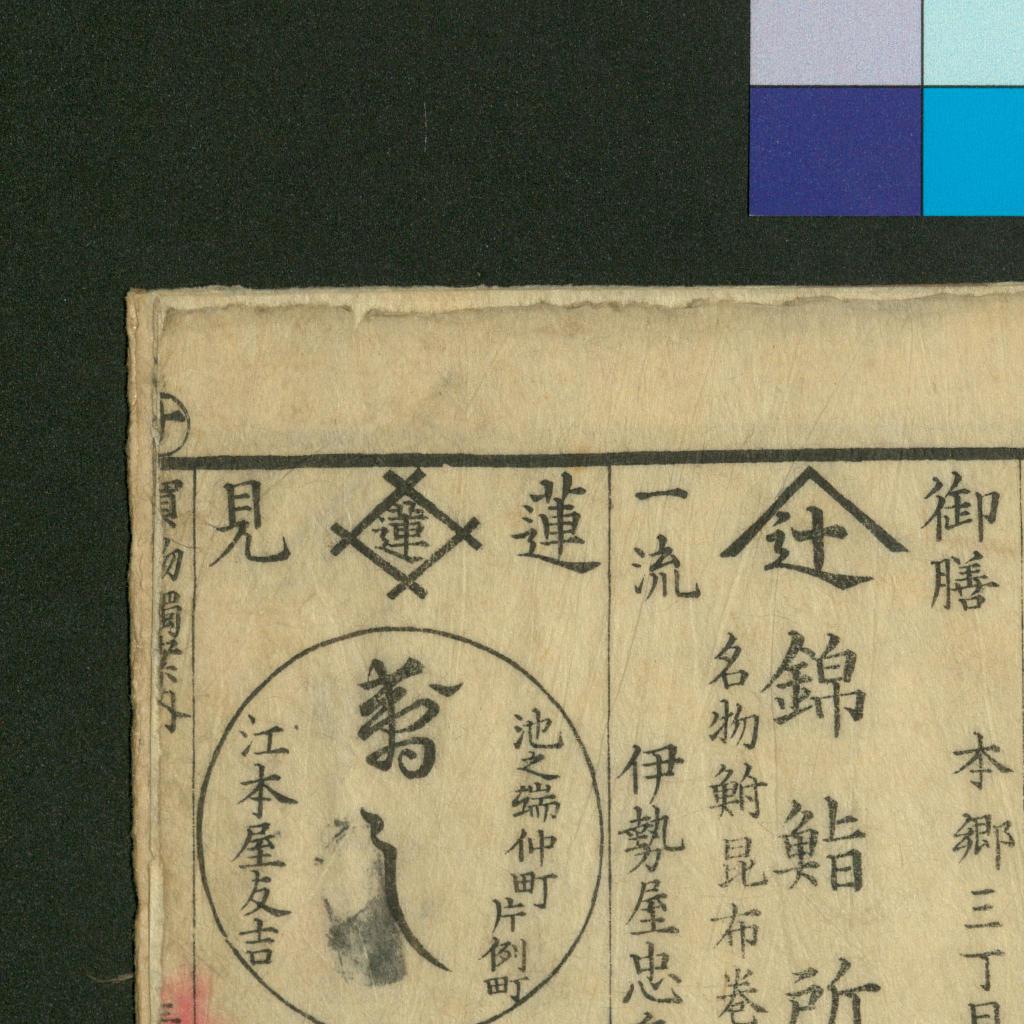 御膳
本郷三丁目
辻
錦鮨所
名物鮒昆布巻
一流
伊勢屋忠
蓮
蓮
見
池之端仲町
片側町
江本屋友吉
買物獨案内